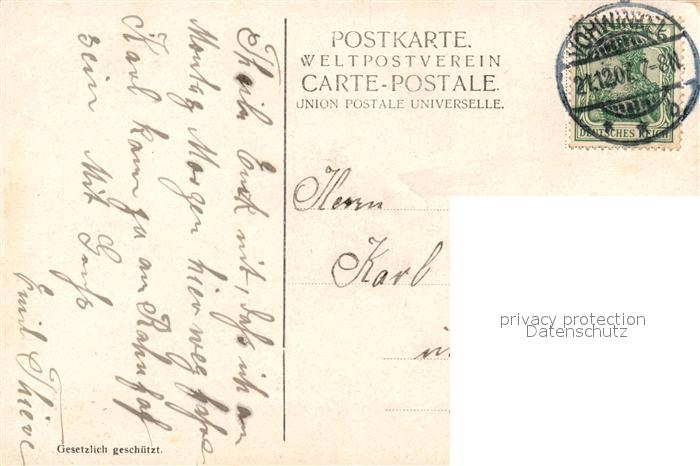 POSTKARTE.
WELTPOSTVEREIN
CARTE-POSTALE.
UNION POSTALE UNIVERSELLE.
VOHWINKEL
21.12.07. 7-8N.
b
DEUTSCHES REICH
Theile Euch mit, daß ich am
Montag Morgen hier weg fahre
Karl kann ja am Bahnhof
sein Mit Gruß
Emil Thieve
Herrn
Karl
in
privacy protection
Datenschutz
Gesetzlich geschützt.